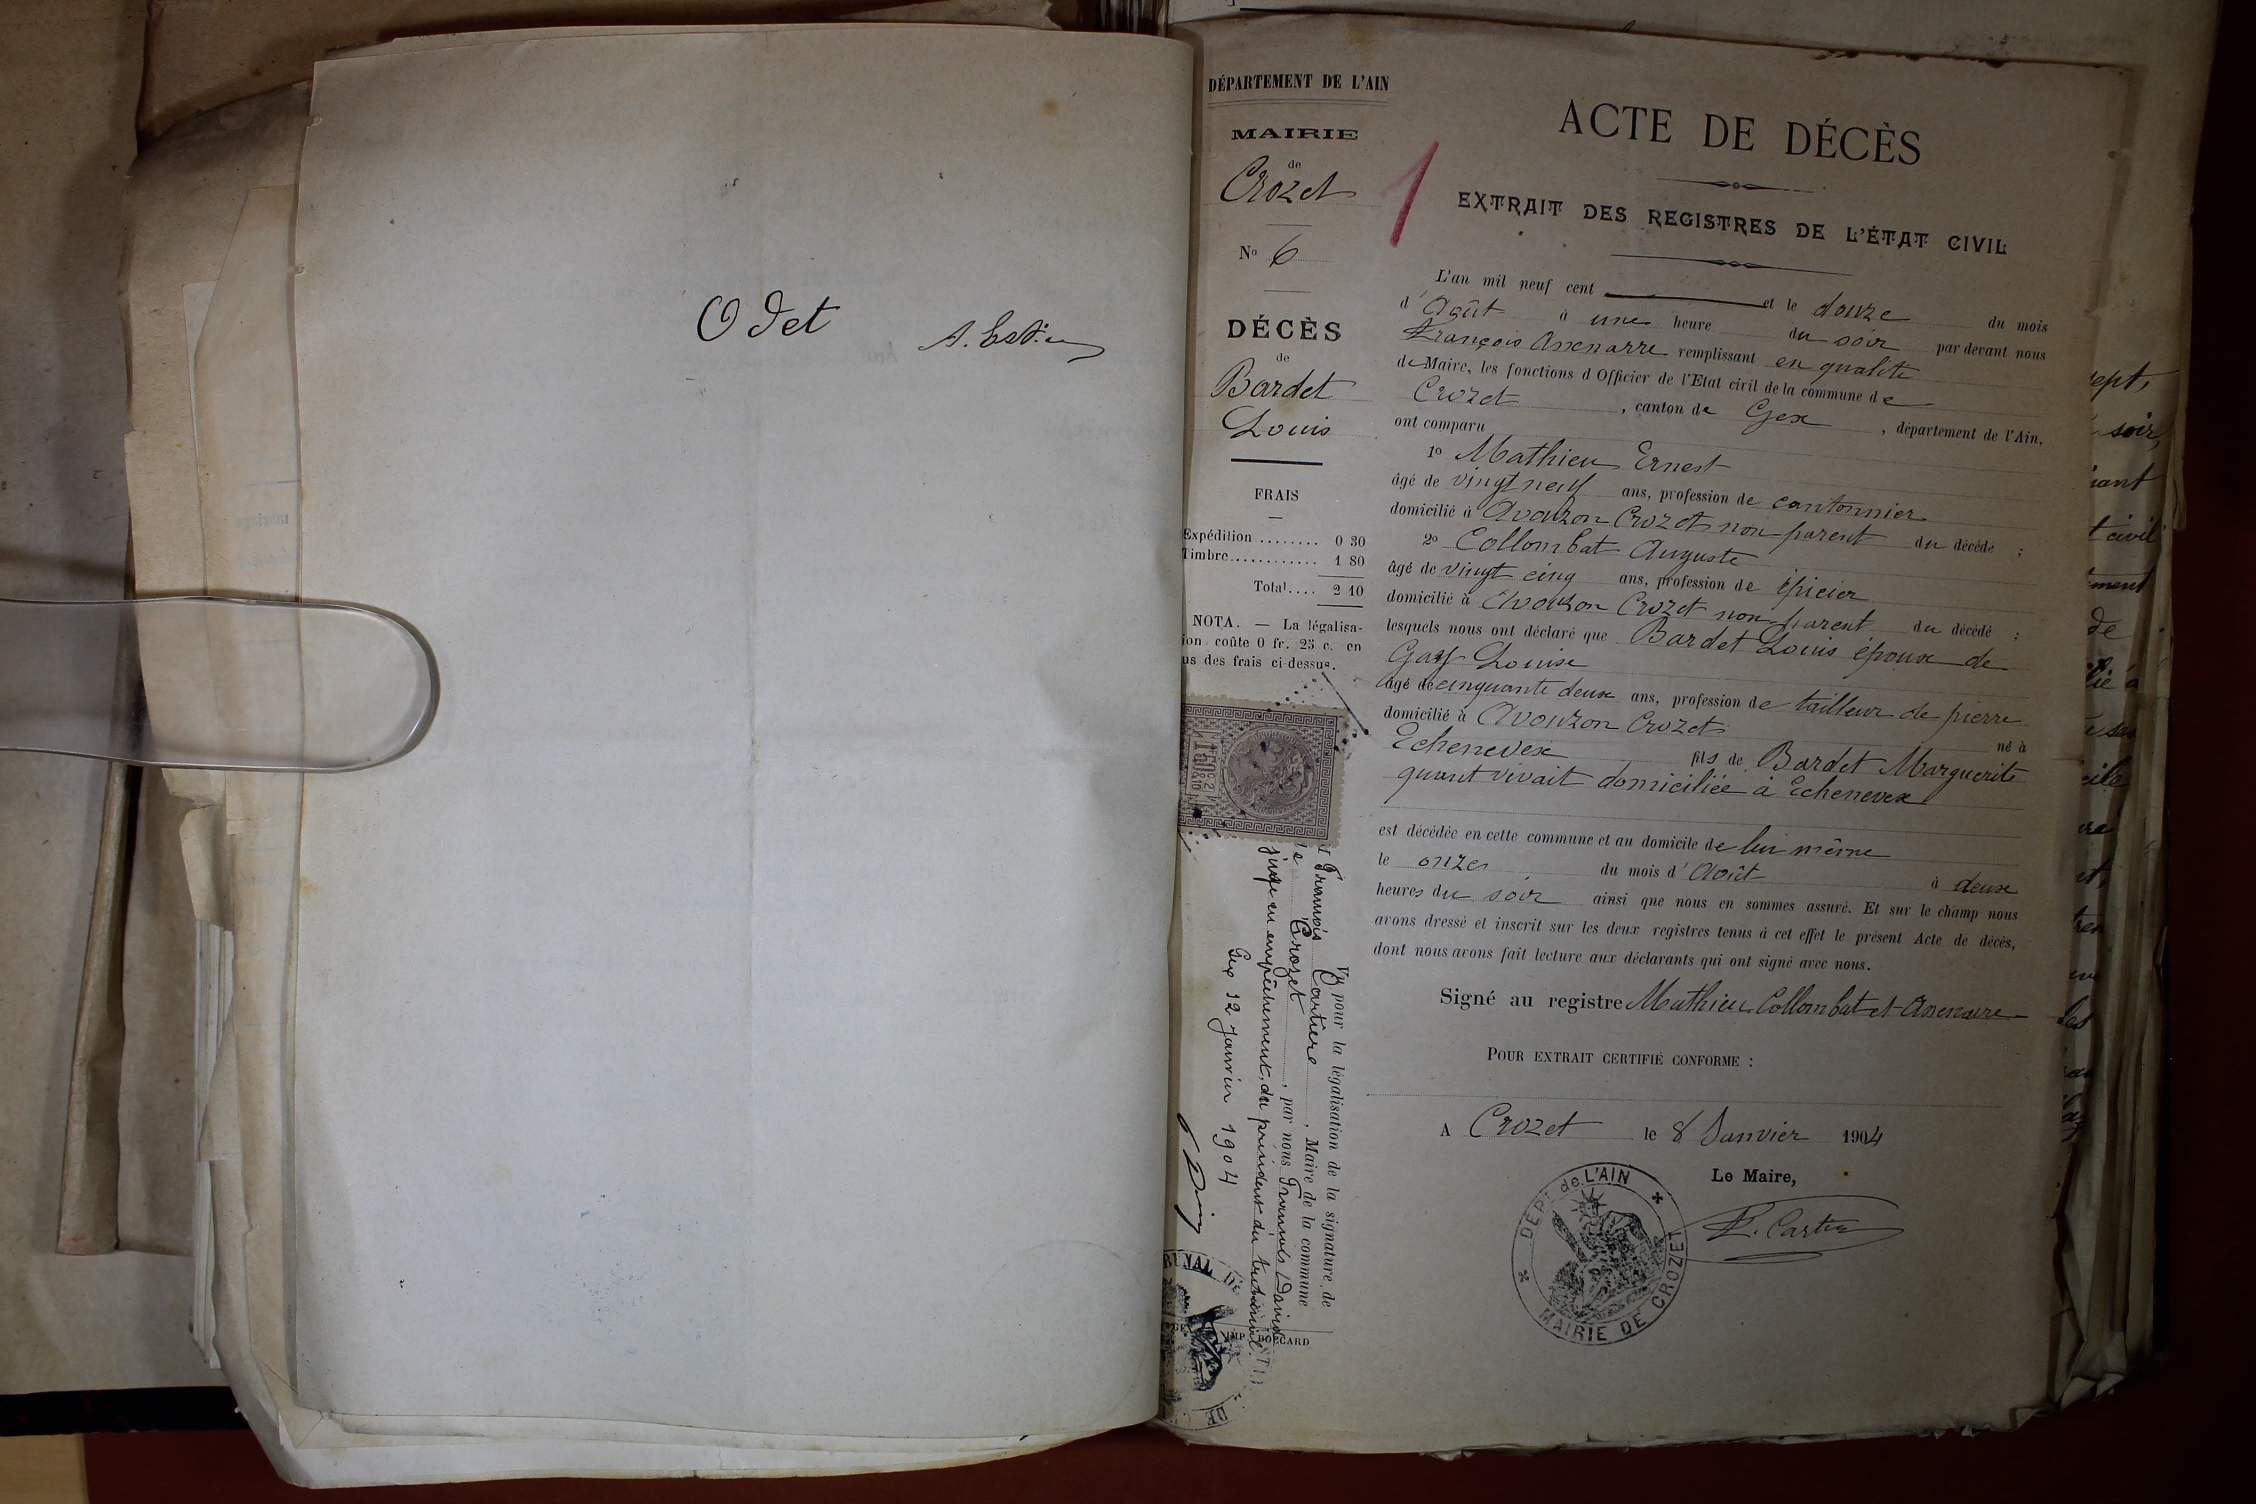 Odet
DÉPARTEMENT DE L'AIN
MAIRIE
de
Crozet
No 6
DÉCÈS
de
Bardet
Louis
FRAIS
Expédition ........ 0 30
Timbre............ 1 80
Total.... 2 10
NOTA. — La légalisa-
ion coûte 0 fr. 25 c. en
us des frais ci-dessus.
Vu pour la légalisation de la signature de
François Cartier, Maire de la commune
Crozet, par nous François David
juge en empêchement du président du tribunal.
Gex 12 Janvier 1904
IMP BOCCARD
1
ACTE DE DÉCÈS
EXTRAIT DES REGISTRES DE L'ÉTAT CIVIL
L'an mil neuf cent et le douze du mois
d'Août à une heure du soir par devant nous
François Assenarre remplissant en qualité
de Maire, les fonctions d'Officier de l'Etat civil de la commune de
Crozet, canton de Gex, département de l'Ain,
ont comparu
1o Mathieu Ernest
âgé de vingt neuf ans, profession de cantonnier
domicilié à Avouzon Crozet non parent du décédé ;
2o Collombat Auguste
âgé de vingt cinq ans, profession de épicier
domicilié à Avouzon Crozet non parent du décédé ;
lesquels nous ont déclaré que Bardet Louis époux de
Gay Louise
âgé de cinquante deux ans, profession de tailleur de pierre
domicilié à Avouzon Crozet né à
Echenevex fils de Bardet Marguerite
quant vivait domiciliée à Echenevex
est décédée en cette commune et au domicile de lui même
le onze du mois d'Août à deux
heures du soir ainsi que nous en sommes assuré. Et sur le champ nous
avons dressé et inscrit sur les deux registres tenus à cet effet le présent Acte de décès,
dont nous avons fait lecture aux déclarants qui ont signé avec nous.
Signé au registre Mathieu Collombat et Assenarre
POUR EXTRAIT CERTIFIÉ CONFORME :
A Crozet le 8 Janvier 1904
Le Maire,
F. Cartier
DÉPT de L'AIN
MAIRIE DE CROZET